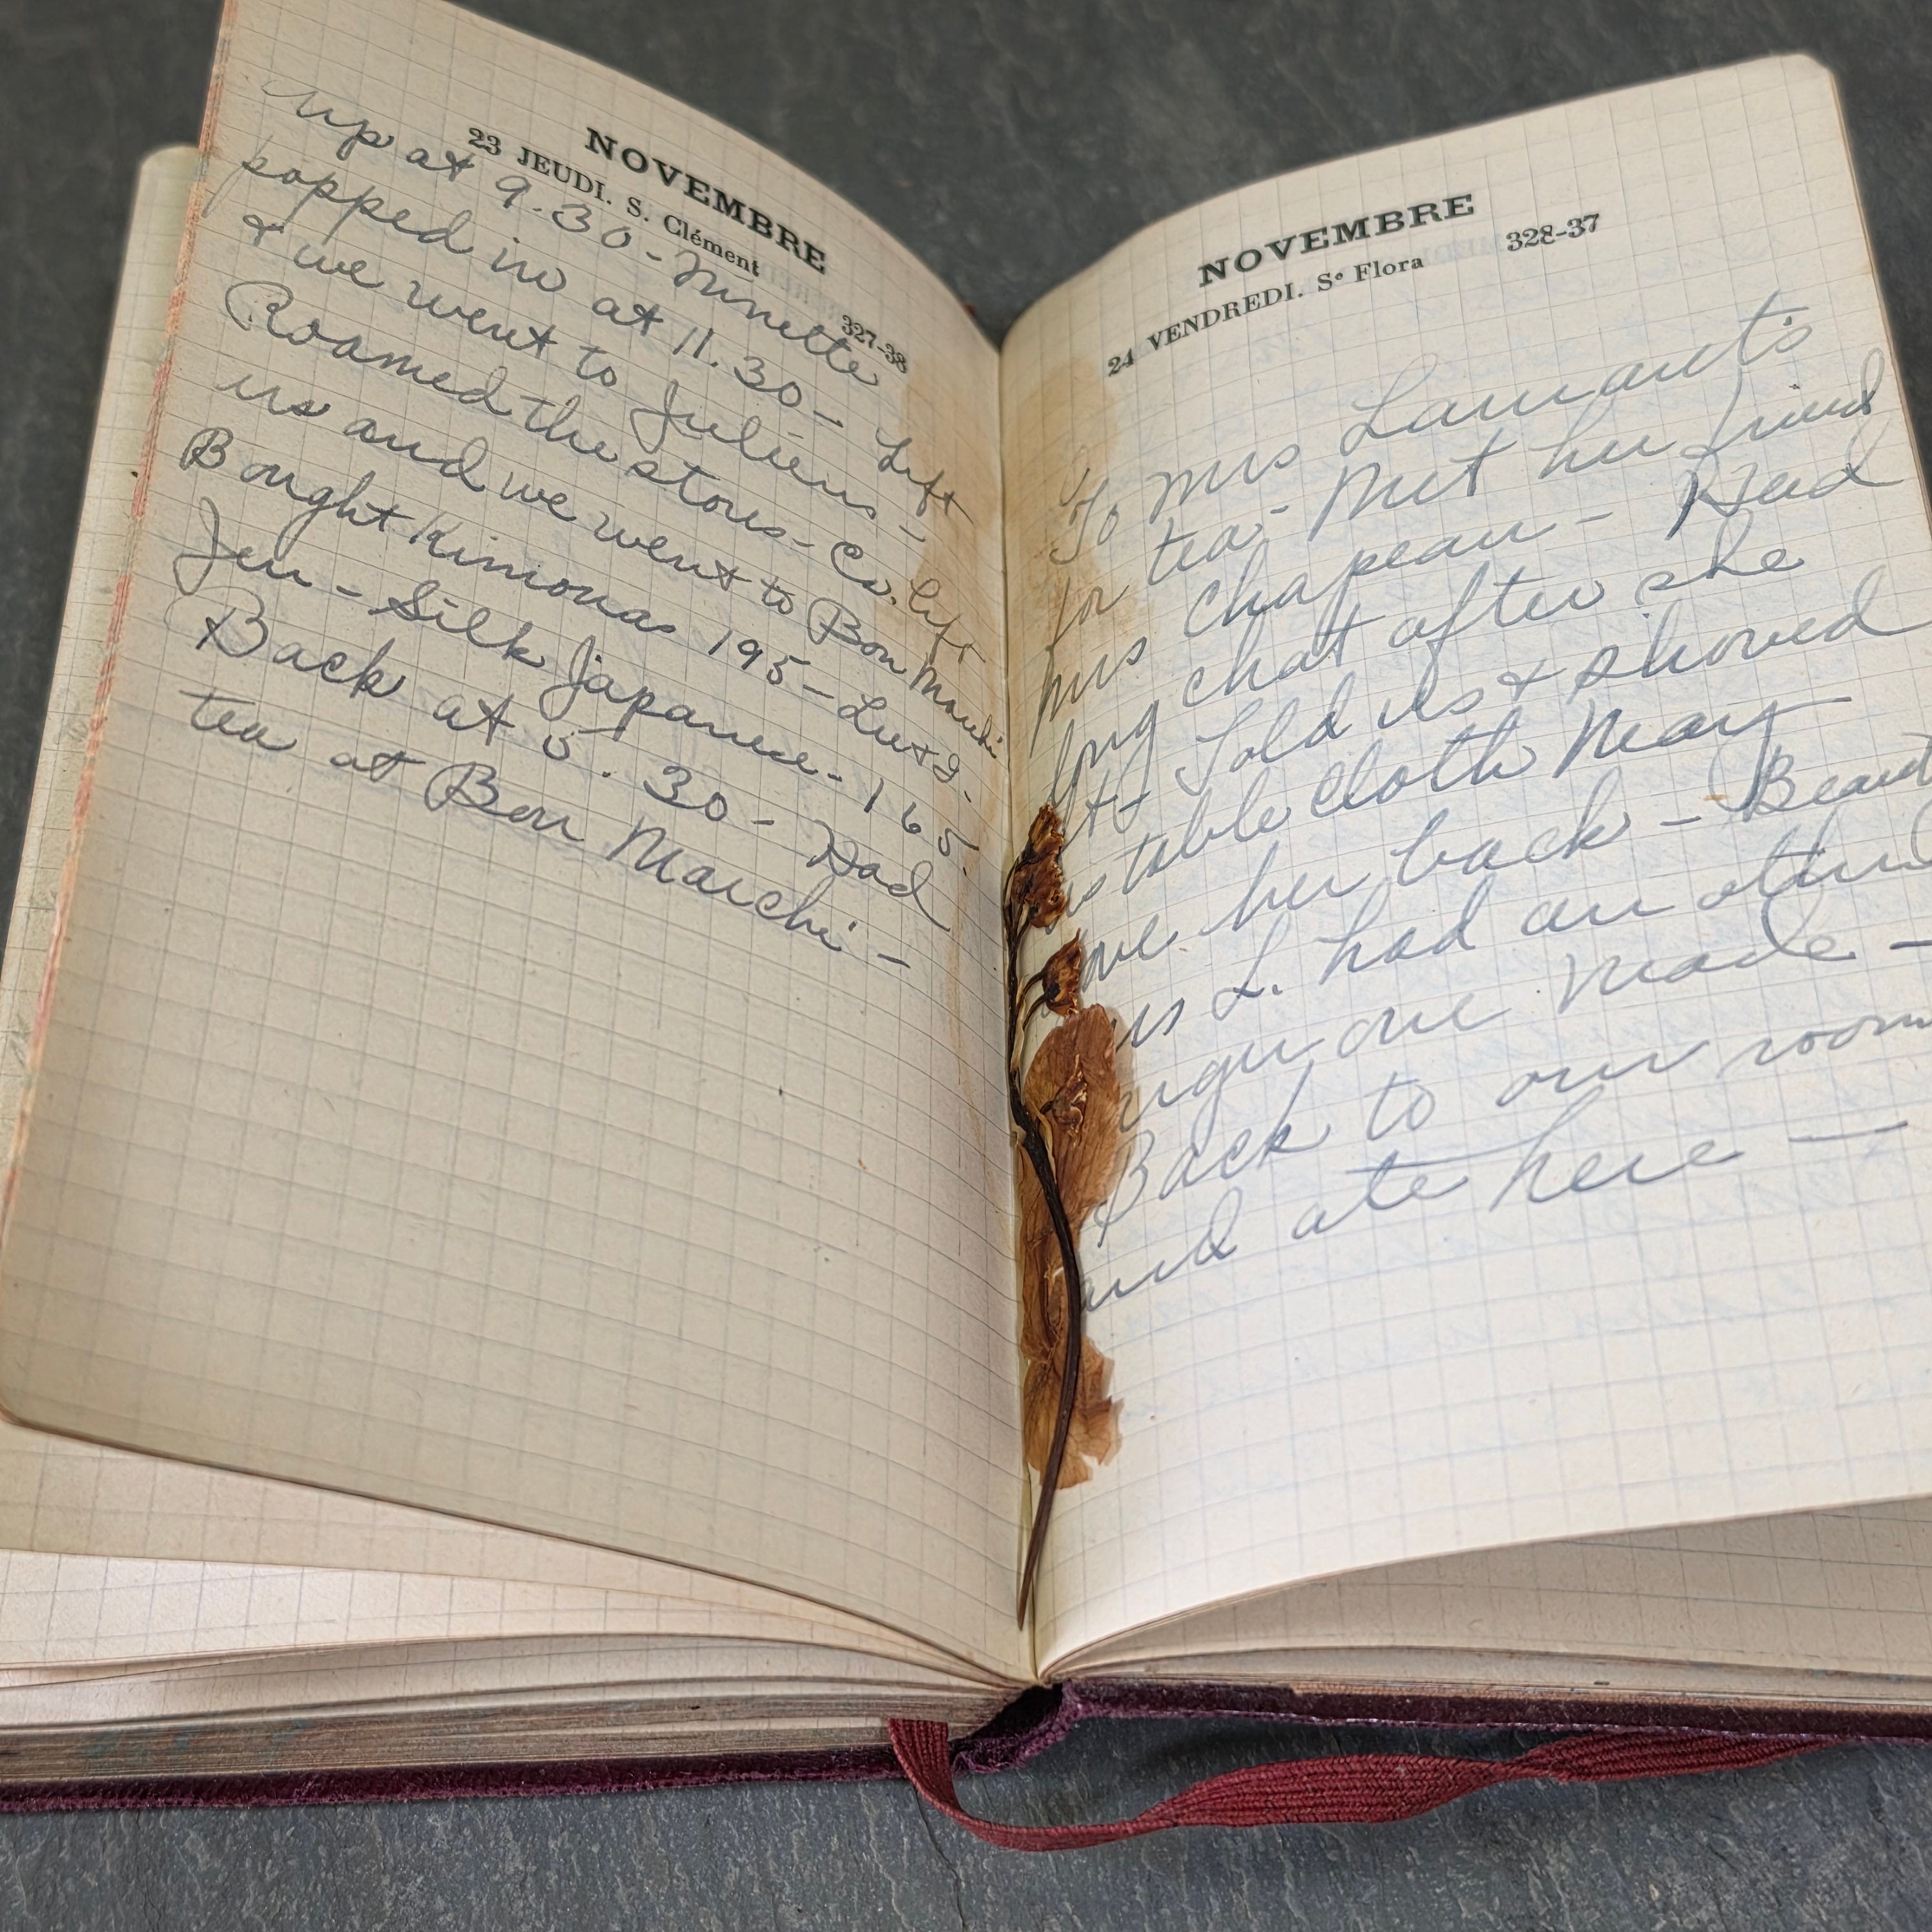 NOVEMBRE
23 JEUDI. S. Clément 327-38
up at 9.30 - Ninette
popped in at 11.30 - Left
& we went to Juliens -
Roamed the stores - Co. left
us and we went to Bon Marchi
Bought Kimonas 195 -
Jen - Silk Japanese - 165.
Back at 5.30 - Had
tea at Bon Marchi -
NOVEMBRE
24 VENDREDI. Sᵉ Flora 328-37
To Mrs Lamant's
for tea - Met her friend
Mrs Chapeau - Had
long chat after she
left - Told us & showed
us table cloth Mary
gave her back - Beaut
Mrs L. had an other
one made -
Back to our room
and ate here -